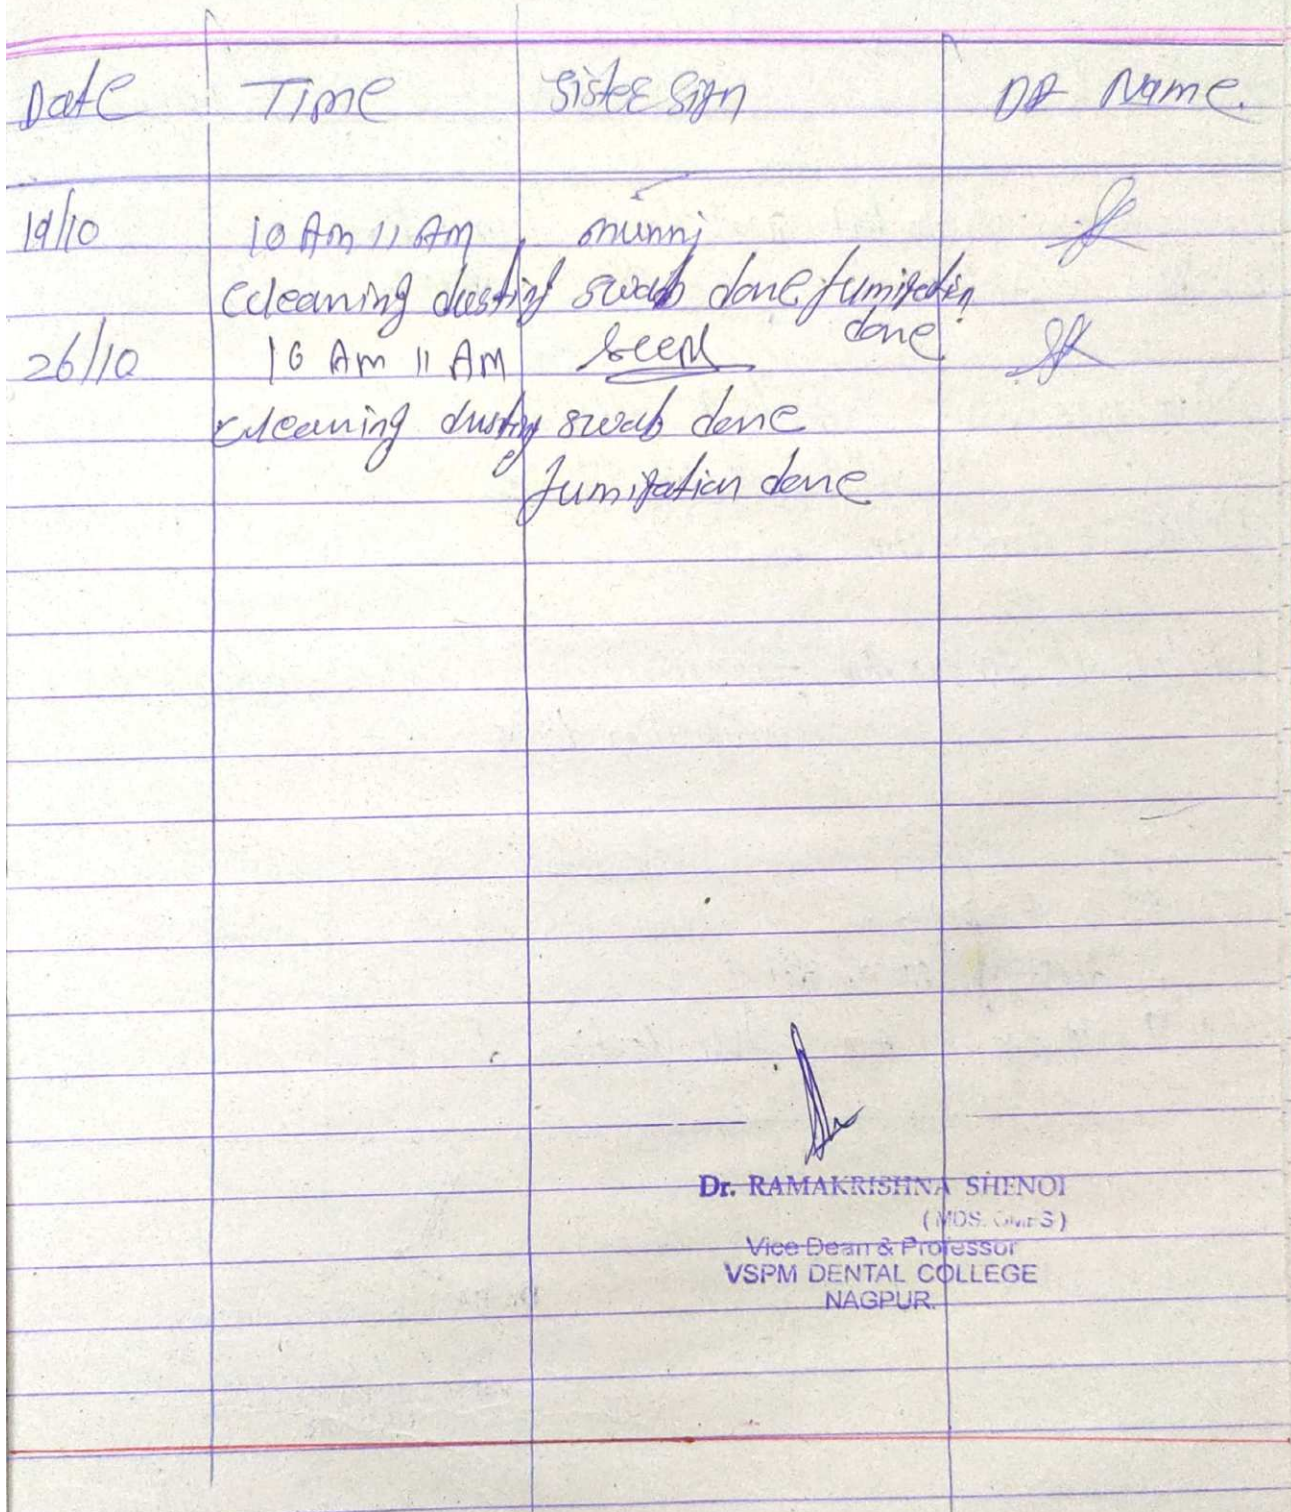 Date Time Sister Sign DR Name.
19/10 10 Am 11 Am munni
cleaning dusting swab done, fumigation
done
26/10 10 Am 11 AM
cleaning dusting swab done
fumigation done
Dr. RAMAKRISHNA SHENOI
(MDS. OMFS)
Vice Dean & Professor
VSPM DENTAL COLLEGE
NAGPUR.